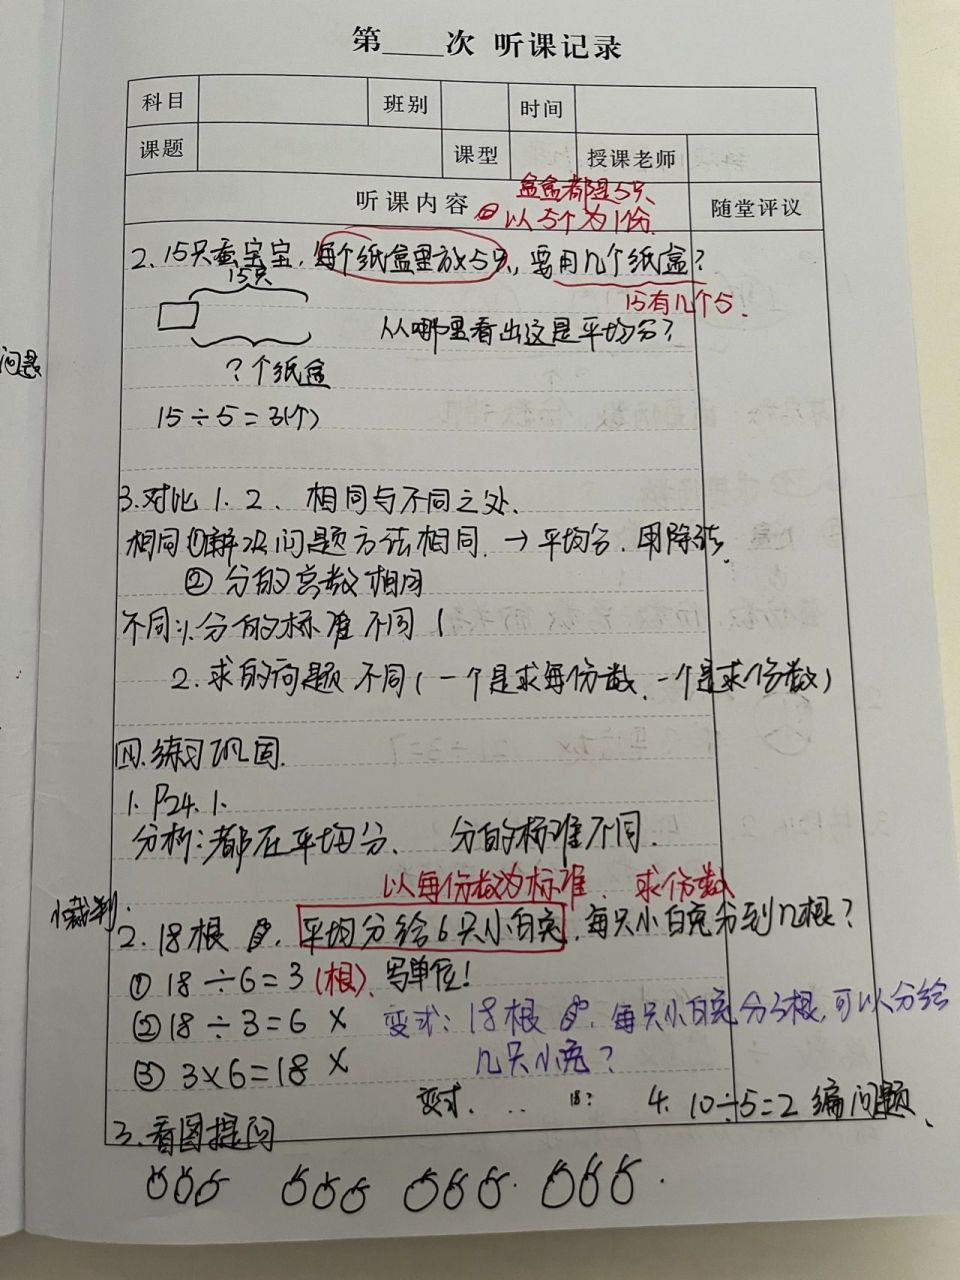 第 次 听课记录
科目 班别 时间
课题 课型 授课老师
听课内容 随堂评议
盒盒都是5只
以5个为1份.
2. 15只蚕宝宝, 每个纸盒里放5只, 要用几个纸盒?
15只
15有几个5.
从哪里看出这是平均分?
问题
?个纸盒
15÷5=3(个)
3.对比1. 2. 相同与不同之处.
相同①解决问题方法相同. → 平均分. 用除法.
② 分的总数相同
不同 1. 分的标准不同
2. 求的问题不同(一个是求每份数、一个是求份数)
四.练习巩固.
1. P24. 1.
分析:都在平均分、 分的标准不同.
以每份数为标准. 求份数
小裁判.
2. 18根 , 平均分给6只小白兔, 每只小白兔分到几根?
① 18÷6=3(根). 写单位!
② 18÷3=6 × 变式: 18根 , 每只小白兔分3根, 可以分给
几只小兔?
③ 3×6=18 ×
变式. .. 18? 4. 10÷5=2 编问题.
3.看图提问